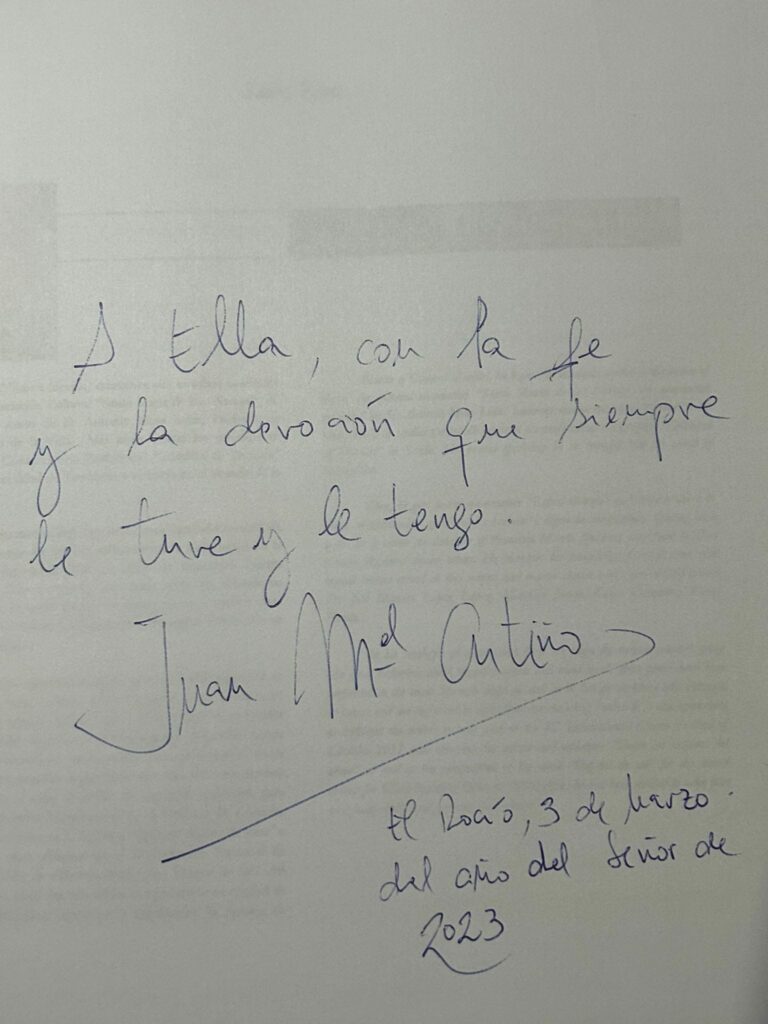 A Ella, con la fe
y la devoción que siempre
le tuve y le tengo.
Juan Mel Antiño
El Rocío, 3 de Marzo.
del año del Señor de
2023